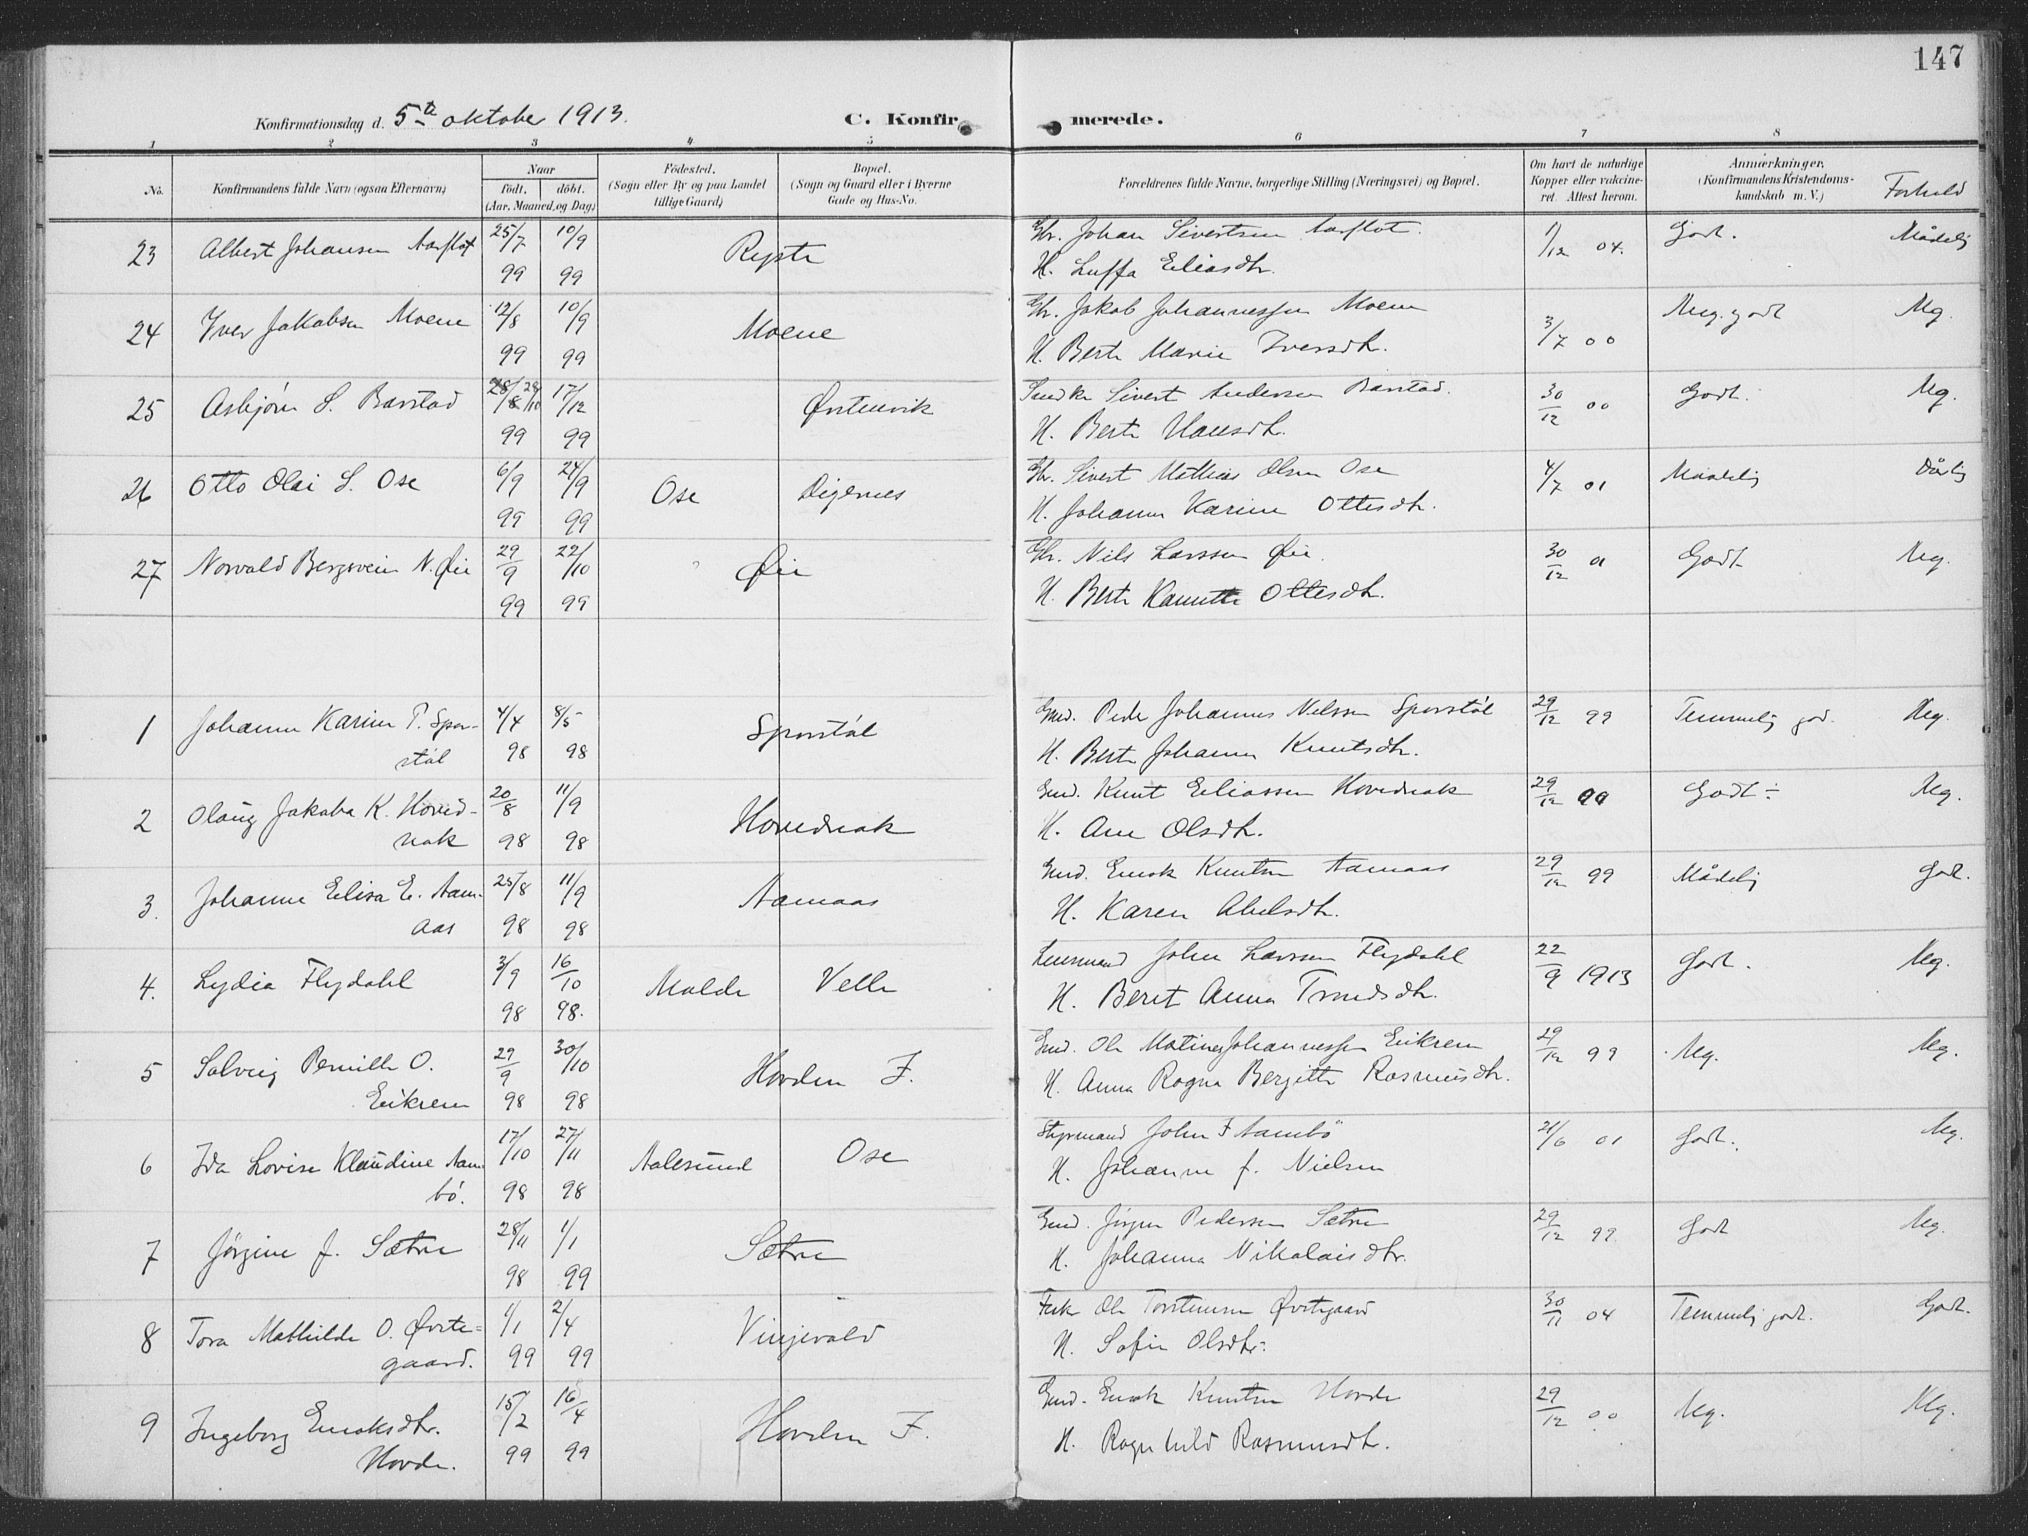 147
Konfirmationsdag d. 5te oktober 1913. C. Konfirmerede.
1 2 3 4 5 6 7 8
No. Konfirmandens fulde Navn (ogsaa Efternavn) Naar födt. döbt. (Aar, Maaned og Dag) Födested. (Sogn eller By og paa Landet tillige Gaard) Bopæl. (Sogn og Gaard eller i Byerne Gade og Hus-No. Forældrenes fulde Navne, borgerlige Stilling (Næringsvei) og Bopæl. Om havt de naturlige Kopper eller vakcineret. Attest herom. Anmærkninger. (Konfirmandens Kristendomskundskab m. V.) Forhold
23 Albert Johansen Aarflot 25/7 99 10/9 99 Ryste Gbr. Johan Sivertsen Aarflot. 1/12 04. Godt. Mådelig
H. Luffa Eliasdtr.
24 Iver Jakobsen Moene 12/8 99 10/9 99 Moene Gbr. Jakob Johannessen Moene 3/7 00 Meg. godt Mg.
H. Berte Marie Iversdtr.
25 Asbjörn S. Barstad 28/8 29/10 99 17/12 99 Østenvik Sivert Andersen Barstad. 30/12 00 Godt. Mg.
H. Berte Hansdtr.
26 Otto Olai S. Ose 6/9 99 24/9 99 Ose Digernes Gbr. Sivert Mathias Olsen Ose 4/7 01 Maadelig Dårlig
H. Johanne Karine Ottesdtr.
27 Norvald Bergsvein N. Øie 29/9 99 22/10 99 Øie Gbr. Nils Larssen Øie. 30/12 01 Godt Meg.
H. Berte Ottesdtr.
1 Johanne Karine P. Sporstöl 4/4 98 8/5 98 Sporstöl Gmd. Peder Johannes Nilsen Sporstöl 29/12 99 Temmelig god. Meg.
H. Berte Johanne Knutsdtr.
2 Olaug Jakoba K. Hovednak 20/8 98 11/9 98 Hovednak Gmd. Knut Eliassen Hovednak 29/12 Godt ÷ Meg.
H. Ane Olsdtr.
3. Johanne Elisa E. Aamaas 25/8 98 11/9 98 Aamaas Gmd. Enok Knutsen Aamaas 29/12 99 Mådelig God.
H. Karen Abelsdtr.
4. Lydia Flydahl 3/9 98 16/10 98. Molde Velle Lensmand John Larssen Flydahl 22/9 1913 Godt. Meg.
H. Beret Anna
5 Solveig Pernille O. Eikrem 29/9 98 30/10 98 Hovden F. Gmd. Ole Johannessen Eikrem 29/12 99 Meg. Meg.
H. Anna Ragna Bergitte Rasmusdtr.
6 Ida Lovise Klaudine Aambö. 17/10 98 27/11 98 Aalesund Ose Styrmand John F Aambö 21/6 01 Godt. Meg.
H. Johanne J. Nielsen
7 Jörgine J. Sætre 28/11 98 1/1 99 Sætre Gmd. Jörgen Pedersen Sætre 29/12 99. Godt Meg.
H. Johanna Nikolaisdtr.
8 Tora Mathilde O. Øvstegaard. 1/1 99 2/4 99 Vinjevold Fisk Ole Torstensen Øvstegaard 30/11 04 Temmelig godt. Godt.
H. Sofie Olsdtr.
9 Ingeborg Enoksdtr. Hovde. 15/2 99 16/4 99 Hovden F. Gmd. Enok Knutsen Hovde 29/12 00 Meg. Meg.
H. Ragnhild Rasmusdtr.